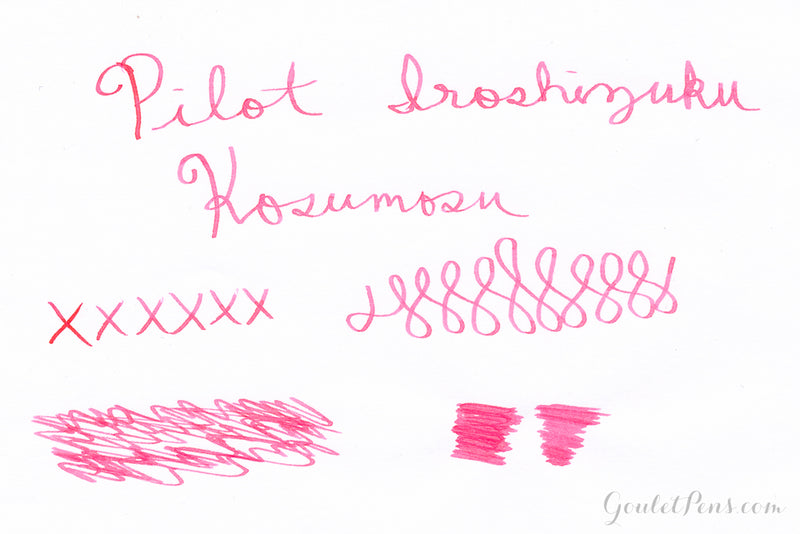 Pilot Iroshizuku
Kosumosu
X X X X X X
GouletPens.com